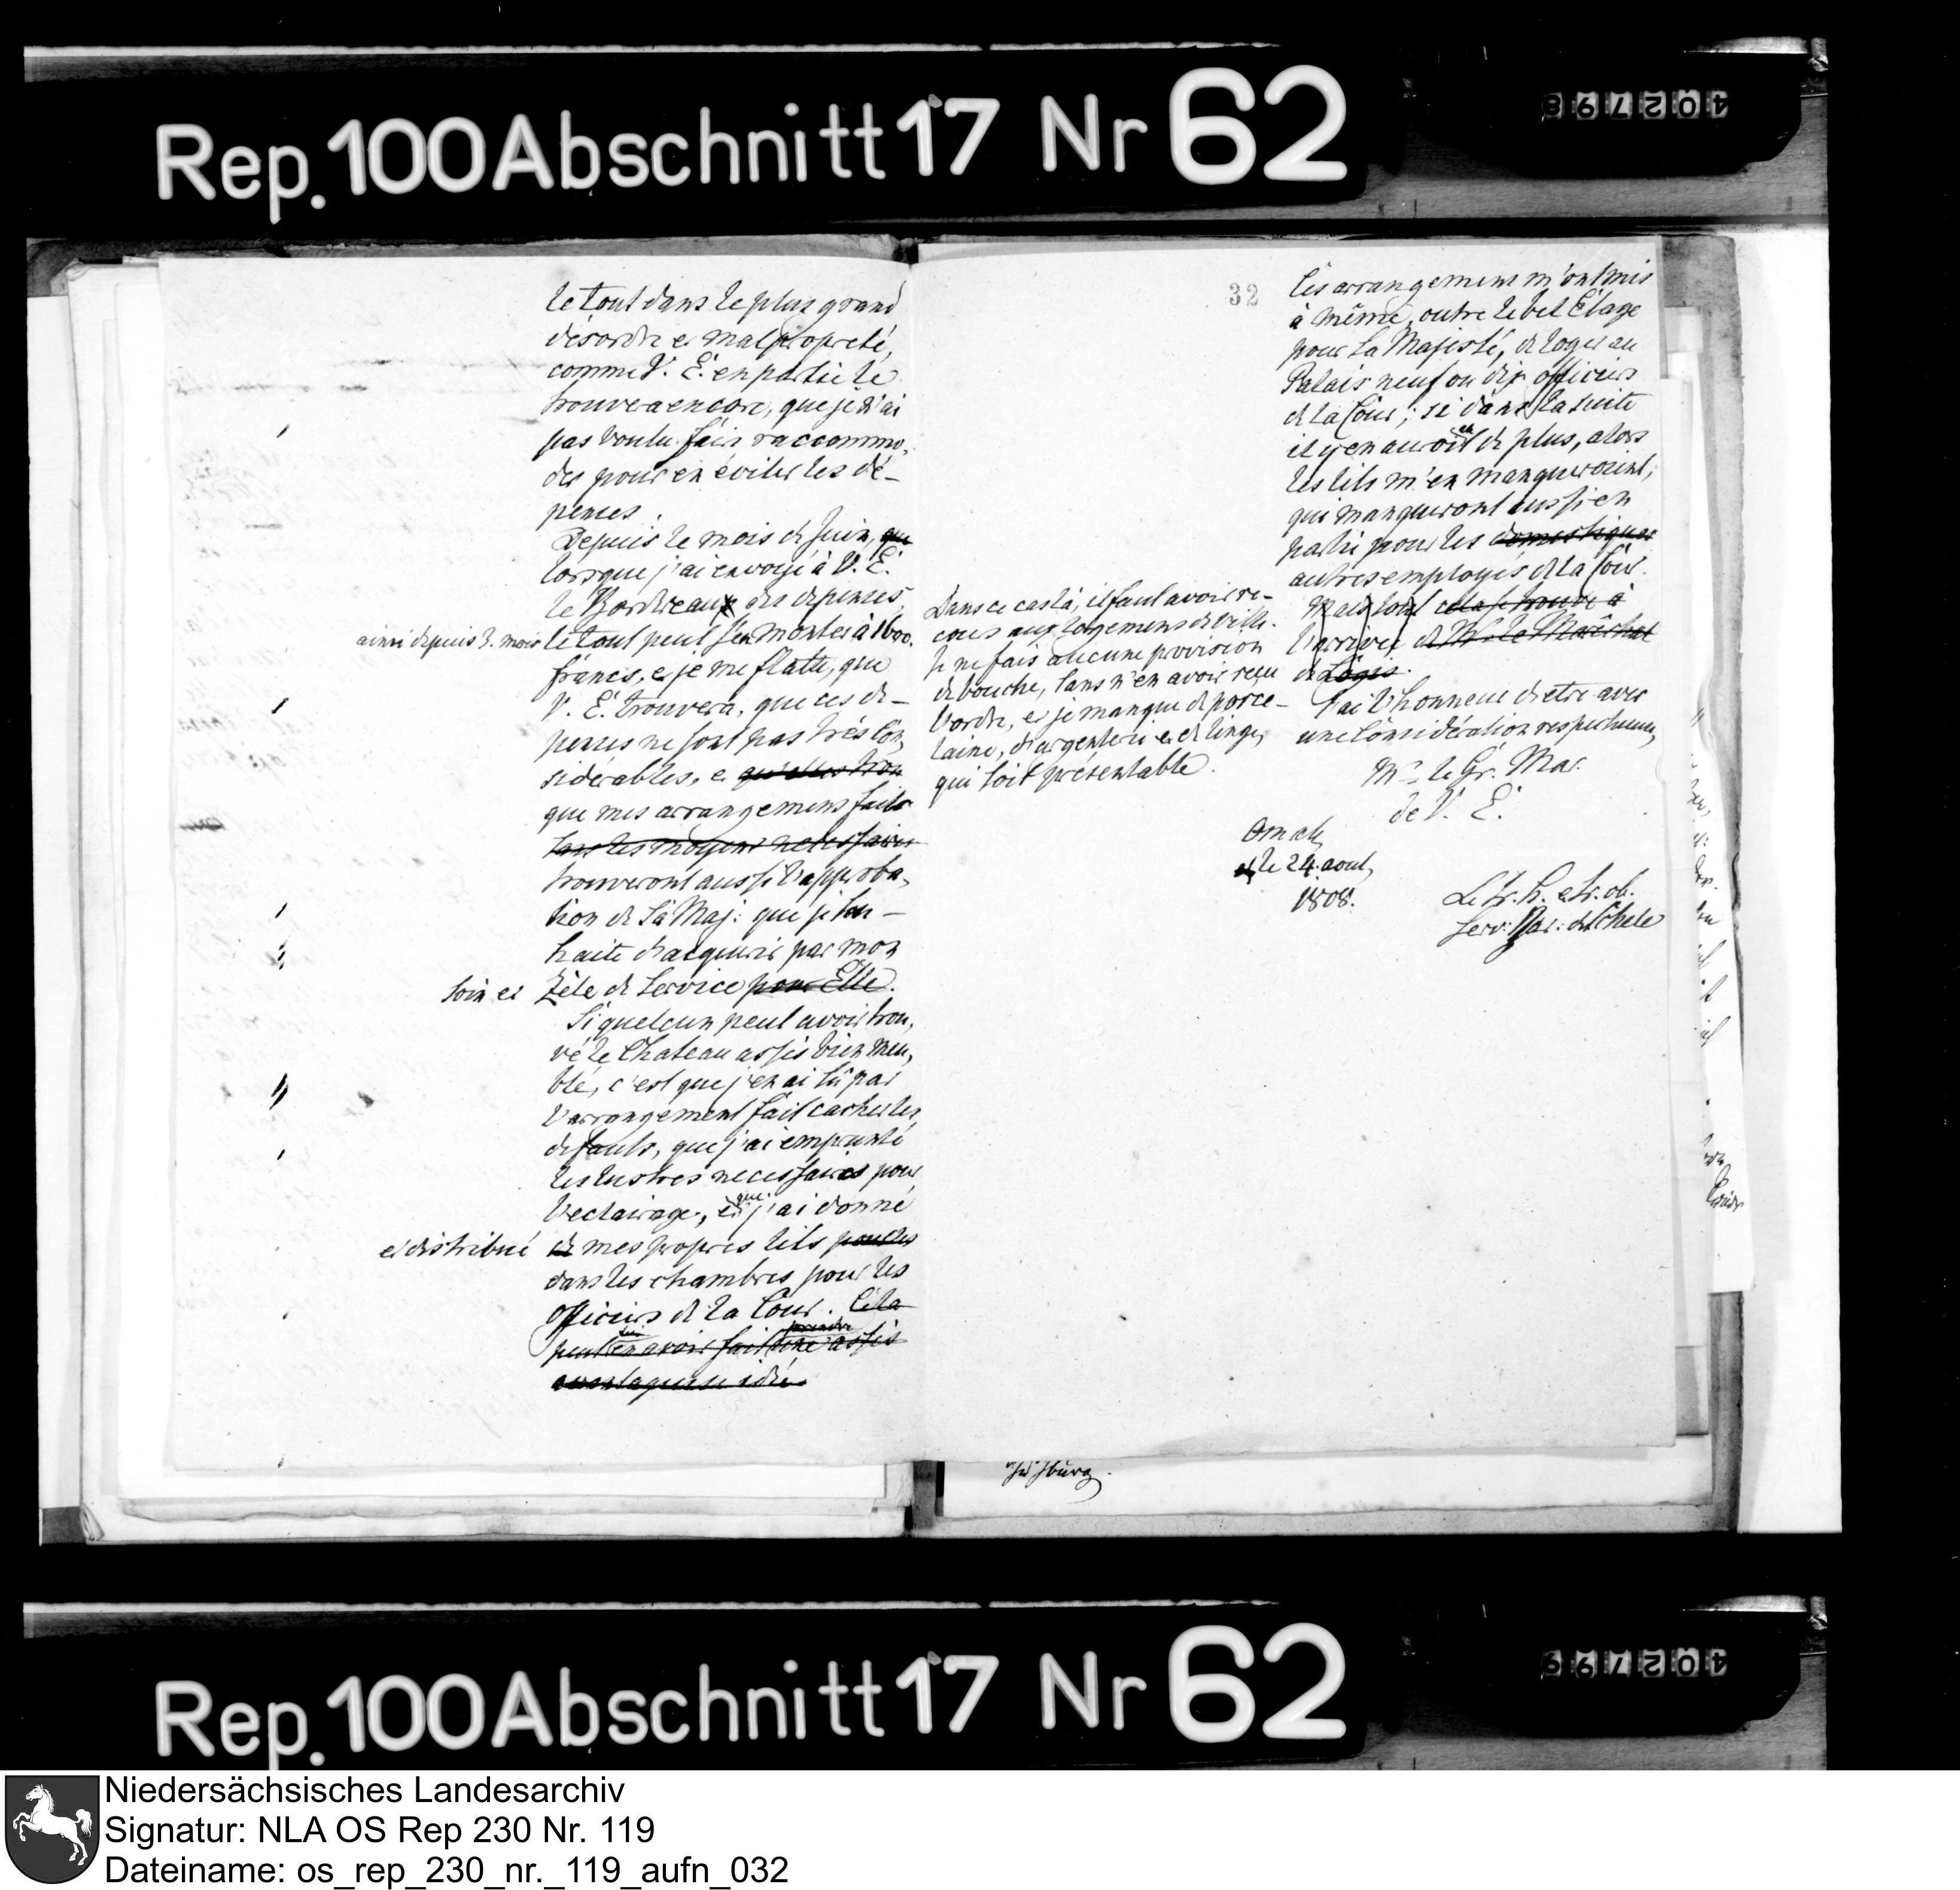 Rep. 100 Abschnitt 17 Nr 62
402798
le tout dans le plus grand
désordre et malpropreté,
comme V. E. en partie le
trouvera encore, que je n'ai
pas voulu faire raccommo,
der pour en éviter les dé-
penses.
Depuis le mois de Juin, que
lorsque j'ai envoyé à V. E.
le Bordereaux des depenses
ainsi depuis 3. mois le tout peut s'en monter à 1600.
francs, et je me flatte, que
V. E. trouvera, que ces de-
penses ne sont pas très con,
sidérables, et qu'elles tron
que mes arrangemens faits
sans les moyens necessaires
trouveront aussi l'approba,
tion de Sa Maj: que je sou-
haite d'acquerir par mon
soin et Zèle de Service pour Elle.
Si quelcun peut avoir trou,
vé le Chateau assés bien meu,
blé, c'est que j'en ai sû par
l'arrangement fait cacher les
defauts, que j'ai emprunté
les lustres necessaires pour
l'eclairage, et que j'ai donné
et distribué de mes propres lits pour les
dans les chambres pour les
Officiers de la Cour. Cela
peut en avoir fait prendre une assés
avantageuse idée.
32
Ces arrangemens m'ont mis
à même, outre le bel Etage
pour Sa Majesté, de loger au
Palais neuf ou dix officiers
de la Cour; si dans la suite
il y en auroit de plus, alors
les lits m'en manqueroient,
qui manqueront aussi en
partie pour les domestiques
autres employés de la Cour.
Mais tout cela se trouve à
l'arrivée de Mr. le Maréchal
de Logis.
Dans ce cas là, il faut avoir re-
cours aux logemens de ville.
Je ne fais aucune provision
de bouche, sans n'en avoir reçu
l'ordre, et je manque de porce-
laine, d'argenterie et de linge,
qui soit présentable.
J'ai l'honneur d'etre avec
une Considération respectueuse,
Mr. le Gr. Mar.
de V. E.
Osnab,
le 24. aout,
1808.
Le tr. h. et tr. ob.
Serv: Bar: de Schele
Rep. 100 Abschnitt 17 Nr 62
402799
Niedersächsisches Landesarchiv
Signatur: NLA OS Rep 230 Nr. 119
Dateiname: os_rep_230_nr._119_aufn_032